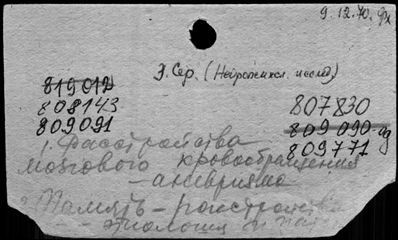 9.12.70.
Э. Сер. (Нейропсихол. исслед)
819012
808143
809091
807830
809090
809771
1. Расстройства
мозгового кровообращения
- аневризма
2. Память - расстройства
- этиология и пат